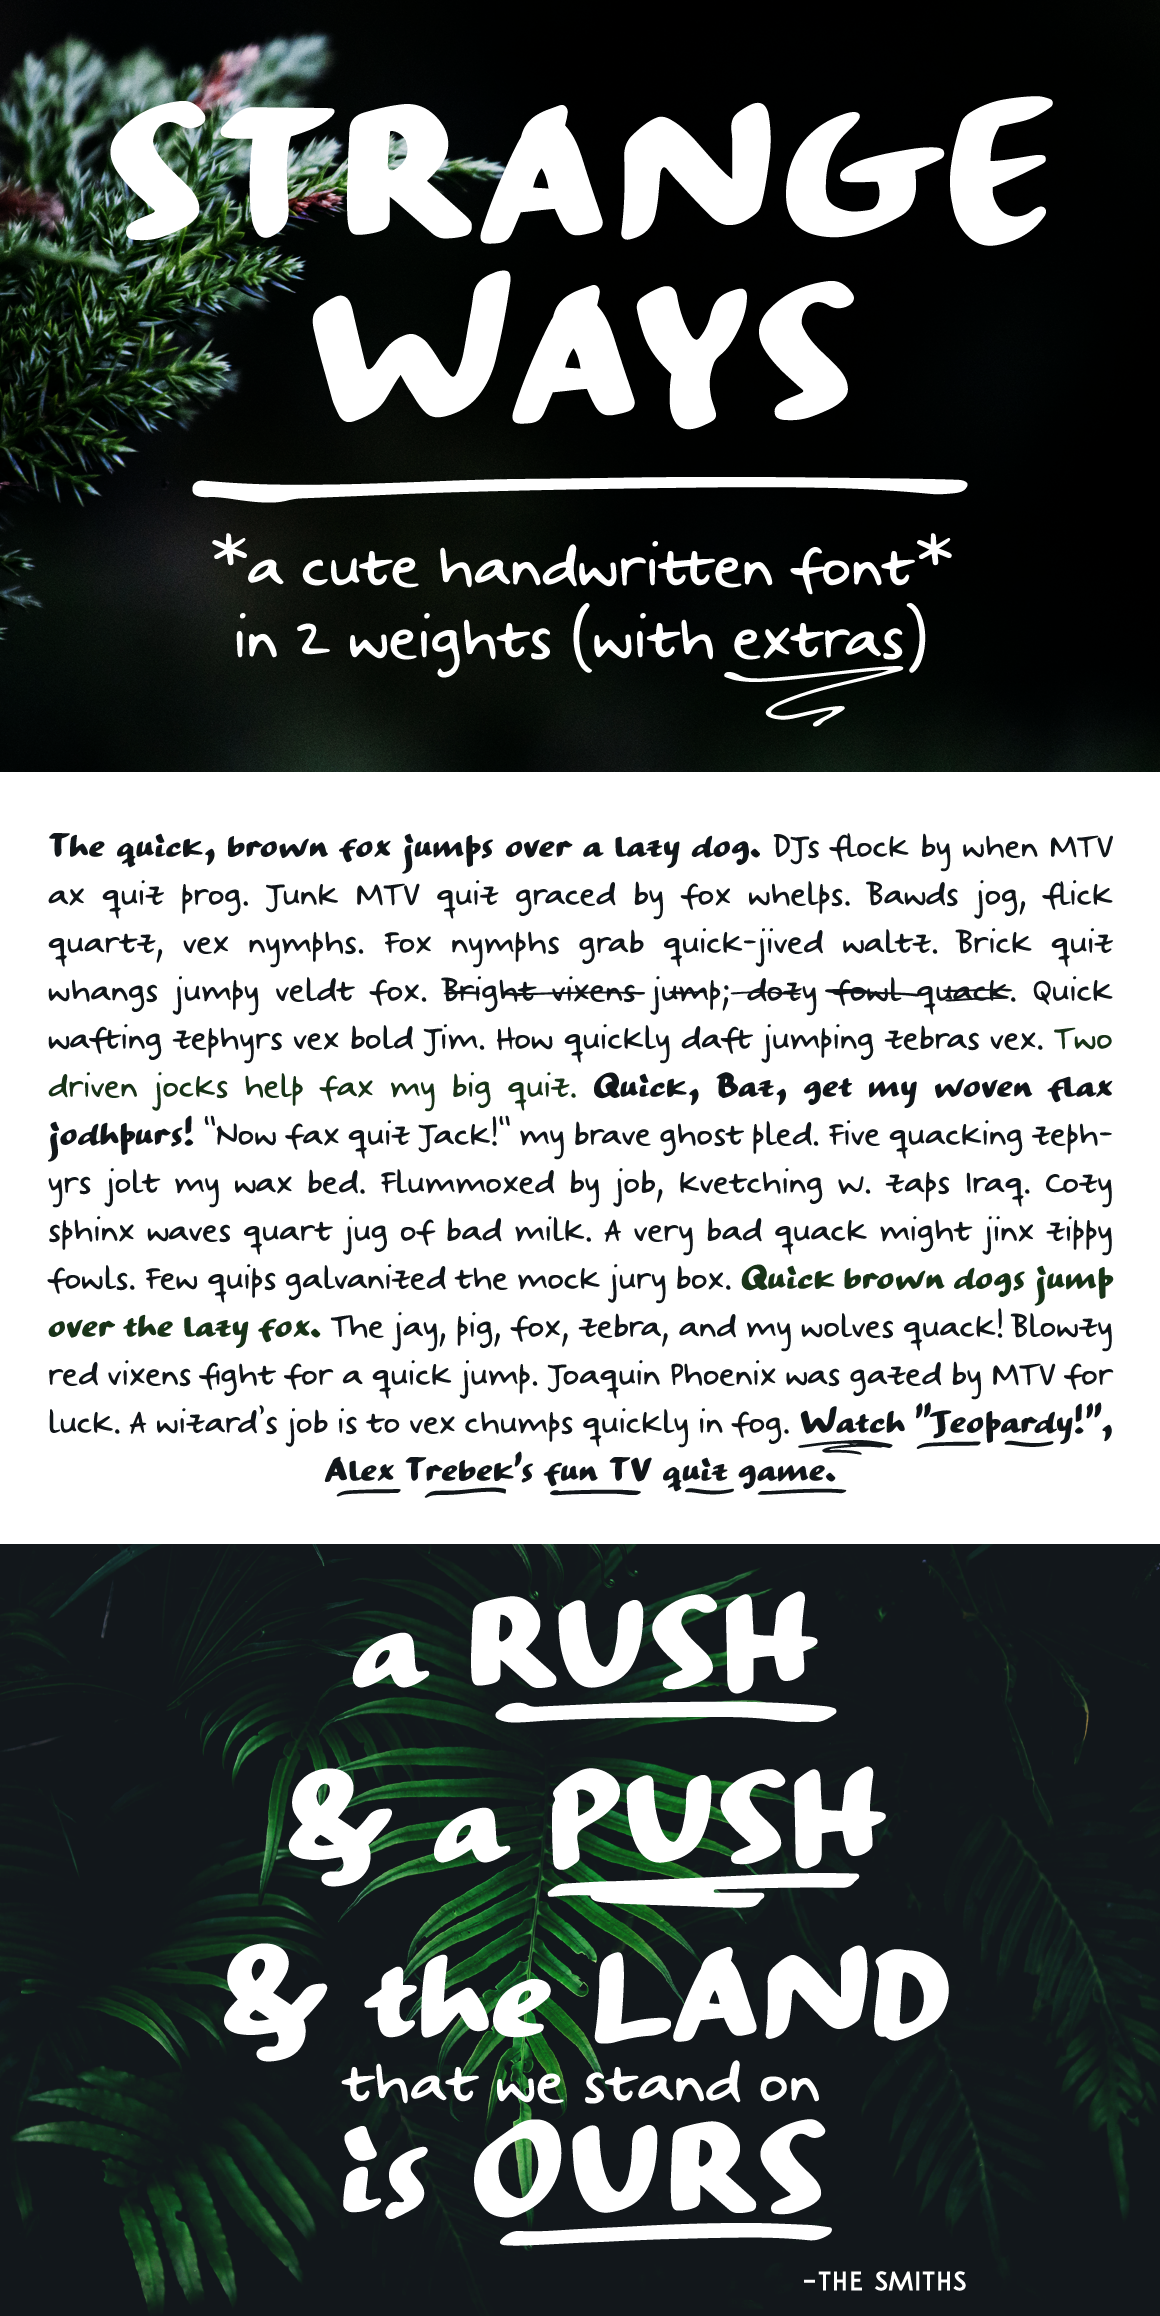 STRANGE
WAYS
*a cute handwritten font*
in 2 weights (with extras)
The quick, brown fox jumps over a lazy dog. DJs flock by when MTV
ax quiz prog. Junk MTV quiz graced by fox whelps. Bawds jog, flick
quartz, vex nymphs. Fox nymphs grab quick-jived waltz. Brick quiz
whangs jumpy veldt fox. Bright vixens jump; dozy fowl quack. Quick
wafting zephyrs vex bold Jim. How quickly daft jumping zebras vex. Two
driven jocks help fax my big quiz. Quick, Baz, get my woven flax
jodhpurs! "Now fax quiz Jack!" my brave ghost pled. Five quacking zeph-
yrs jolt my wax bed. Flummoxed by job, kvetching W. zaps Iraq. Cozy
sphinx waves quart jug of bad milk. A very bad quack might jinx zippy
fowls. Few quips galvanized the mock jury box. Quick brown dogs jump
over the lazy fox. The jay, pig, fox, zebra, and my wolves quack! Blowzy
red vixens fight for a quick jump. Joaquin Phoenix was gazed by MTV for
luck. A wizard's job is to vex chumps quickly in fog. Watch "Jeopardy!",
Alex Trebek's fun TV quiz game.
a RUSH
& a PUSH
& the LAND
that we stand on
is OURS
-THE SMITHS